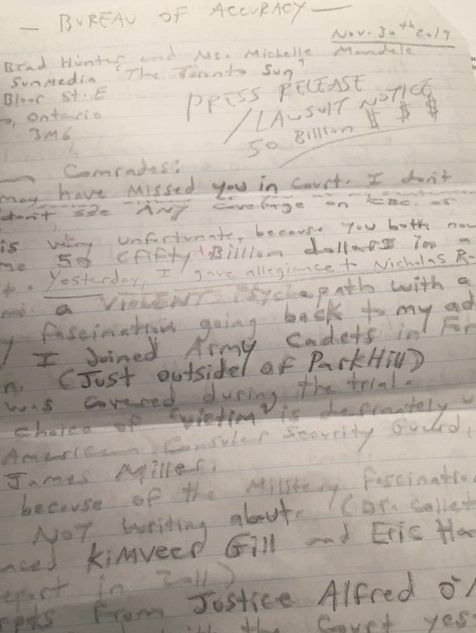 — BUREAU OF ACCURACY —
Nov. 30th 2017
Brad Hunter and Ms. Michelle Mandel
SunMedia "The Toronto Sun"
Bloor St. E
Ontario
3M6
PRESS RELEASE
/LAWSUIT NOTICE
50 Billion $ $ $
Comrades:
may have missed you in court. I don't
don't see ANY coverage on CBC or
is very unfortunate, because you both now
me 50 (fifty) Billion dollars in
Yesterday, I gave allegiance to Nicholas
a VIOLENT Psychopath with a
fascination going back to my
I Joined Army Cadets in
(Just outside of ParkHill)
was covered during the trial.
choice of "victim" is definately
American Consuler Security Guard,
James Miller.
because of the Military Fascination
NOT writing about. (Dr.
Kimveer Gill and Eric
in
From Justice Alfred O'
the Court yes